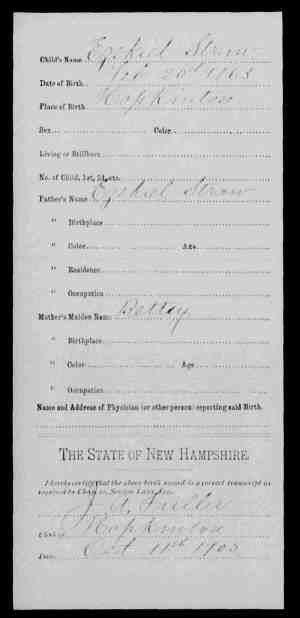 Child's Name Ezekiel Straw
Date of Birth Feb 20th 1763
Place of Birth Hopkinton
Sex Color
Living or Stillborn
No. of Child, 1st, 2d, etc.
Father's Name Ezekiel Straw
" Birthplace
" Color Age
" Residence
" Occupation
Mother's Maiden Name Betty
" Birthplace
" Color Age
" Occupation
Name and Address of Physician (or other person) reporting said Birth.
THE STATE OF NEW HAMPSHIRE.
I hereby certify that the above birth record is a correct transcript as
required by Chap. 21, Session Laws
Clerk of Hopkinton
Date Oct 11th 1905